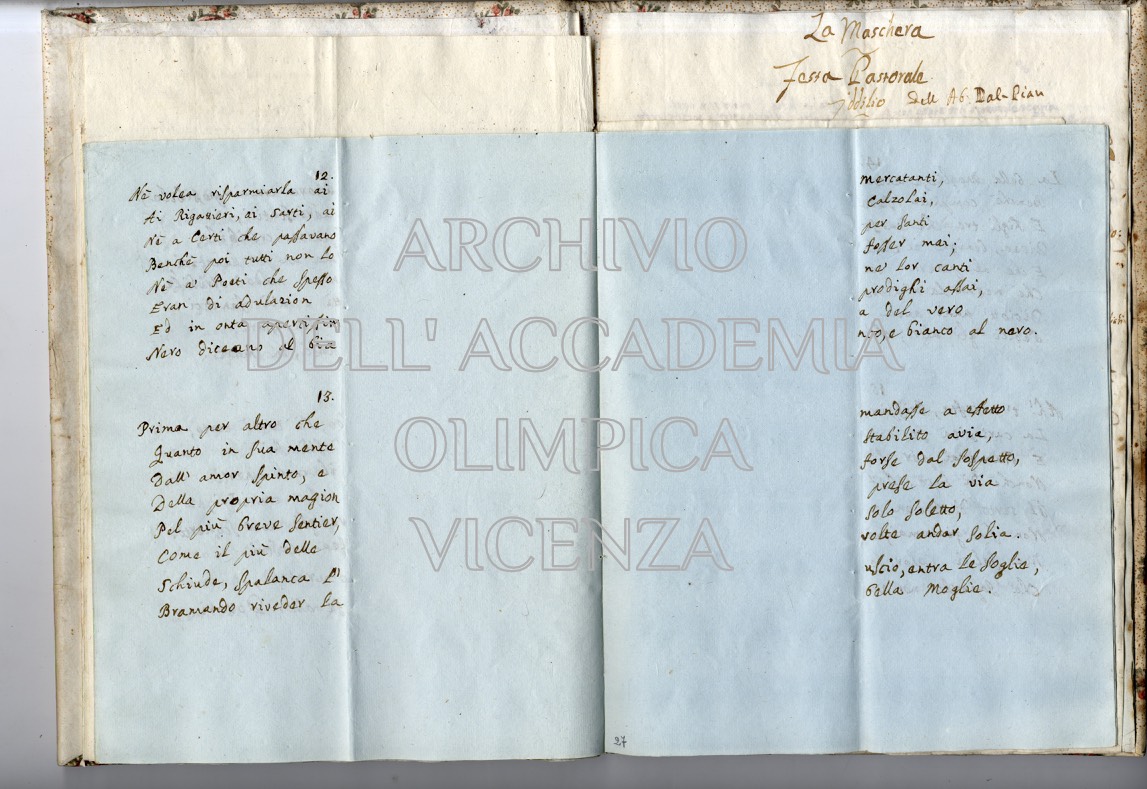 La Maschera
Festa Pastorale
Iddilio dell Ab. Dal-Pian
12.
Nè volea risparmiarla ai mercatanti,
Ai Rigattieri, ai Sarti, ai Calzolai,
Nè a Certi che passavano per Santi
Benchè poi tutti non lo fosser mai;
Nè a' Poeti che spesso ne' lor canti
Eran di adulazion prodighi assai,
Ed in onta apertissima del vero
Nero diceano al bianco, e bianco al nero.
13.
Prima per altro che mandasse a effetto
Quanto in sua mente stabilito avia,
Dall' amor spinto, e forse dal sospetto,
Della propria magion prese la via
Pel più breve sentier, solo soletto,
Come il più delle volte andar solia.
Schiude, spalanca l' uscio, entra le soglie,
Bramando riveder la bella Moglie.
27
ARCHIVIO
DELL' ACCADEMIA
OLIMPICA
VICENZA